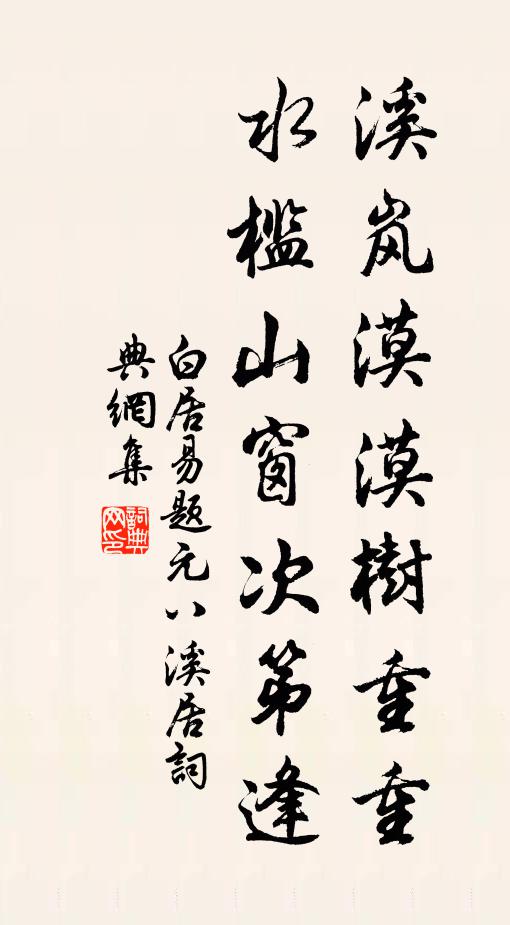 溪岚漠漠樹重重
水槛山窗次第逢
白居易题元八溪居詞
典網集
詞典网印